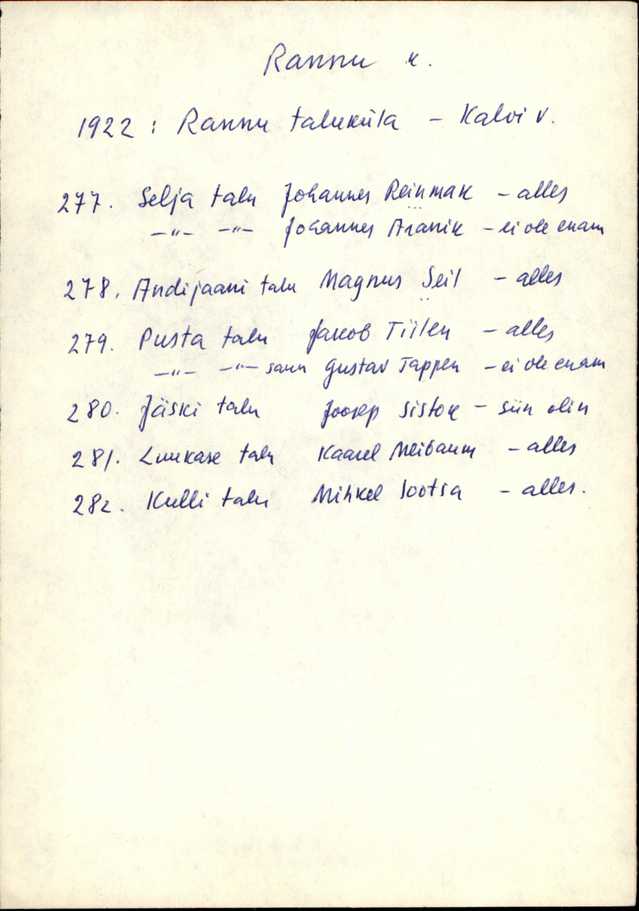 Rannu k.
1922 : Rannu taluküla – Kalvi v.
277. Selja talu Johannes Reinmak – alles
–"– –"– Johannes Aranik – ei ole enam
278. Andijaani talu Magnus Seil – alles
279. Pusta talu Jakob Tiilen – alles
–"– –"– saun Gustav Tappen – ei ole enam
280. Jäski talu Joosep Sistok – siin olin
281. Luukase talu Kaarel Meibaum – alles
282. Kulli talu Mihkel Sootsa – alles.